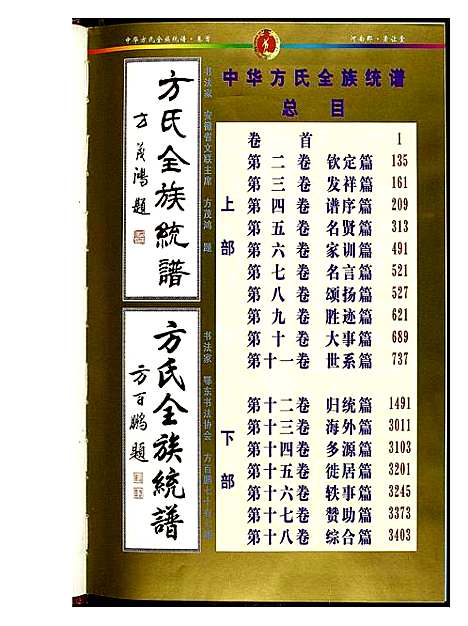 中华方氏全族统谱·卷首
河南郡·
方氏全族統譜
方茂鴻題
书法家 安徽省文联主席 方茂鸿 题
方氏全族統譜
方百鵬題
书法家 鄂东书法协会 方百鹏七十
中华方氏全族统谱
总目
上部
卷首 1
第二卷 钦定篇 135
第三卷 发祥篇 161
第四卷 谱序篇 209
第五卷 名贤篇 313
第六卷 家训篇 491
第七卷 名言篇 521
第八卷 颂扬篇 527
第九卷 胜迹篇 621
第十卷 大事篇 689
第十一卷 世系篇 737
下部
第十二卷 归统篇 1491
第十三卷 海外篇 3011
第十四卷 多源篇 3103
第十五卷 徙居篇 3201
第十六卷 轶事篇 3245
第十七卷 赞助篇 3373
第十八卷 综合篇 3403